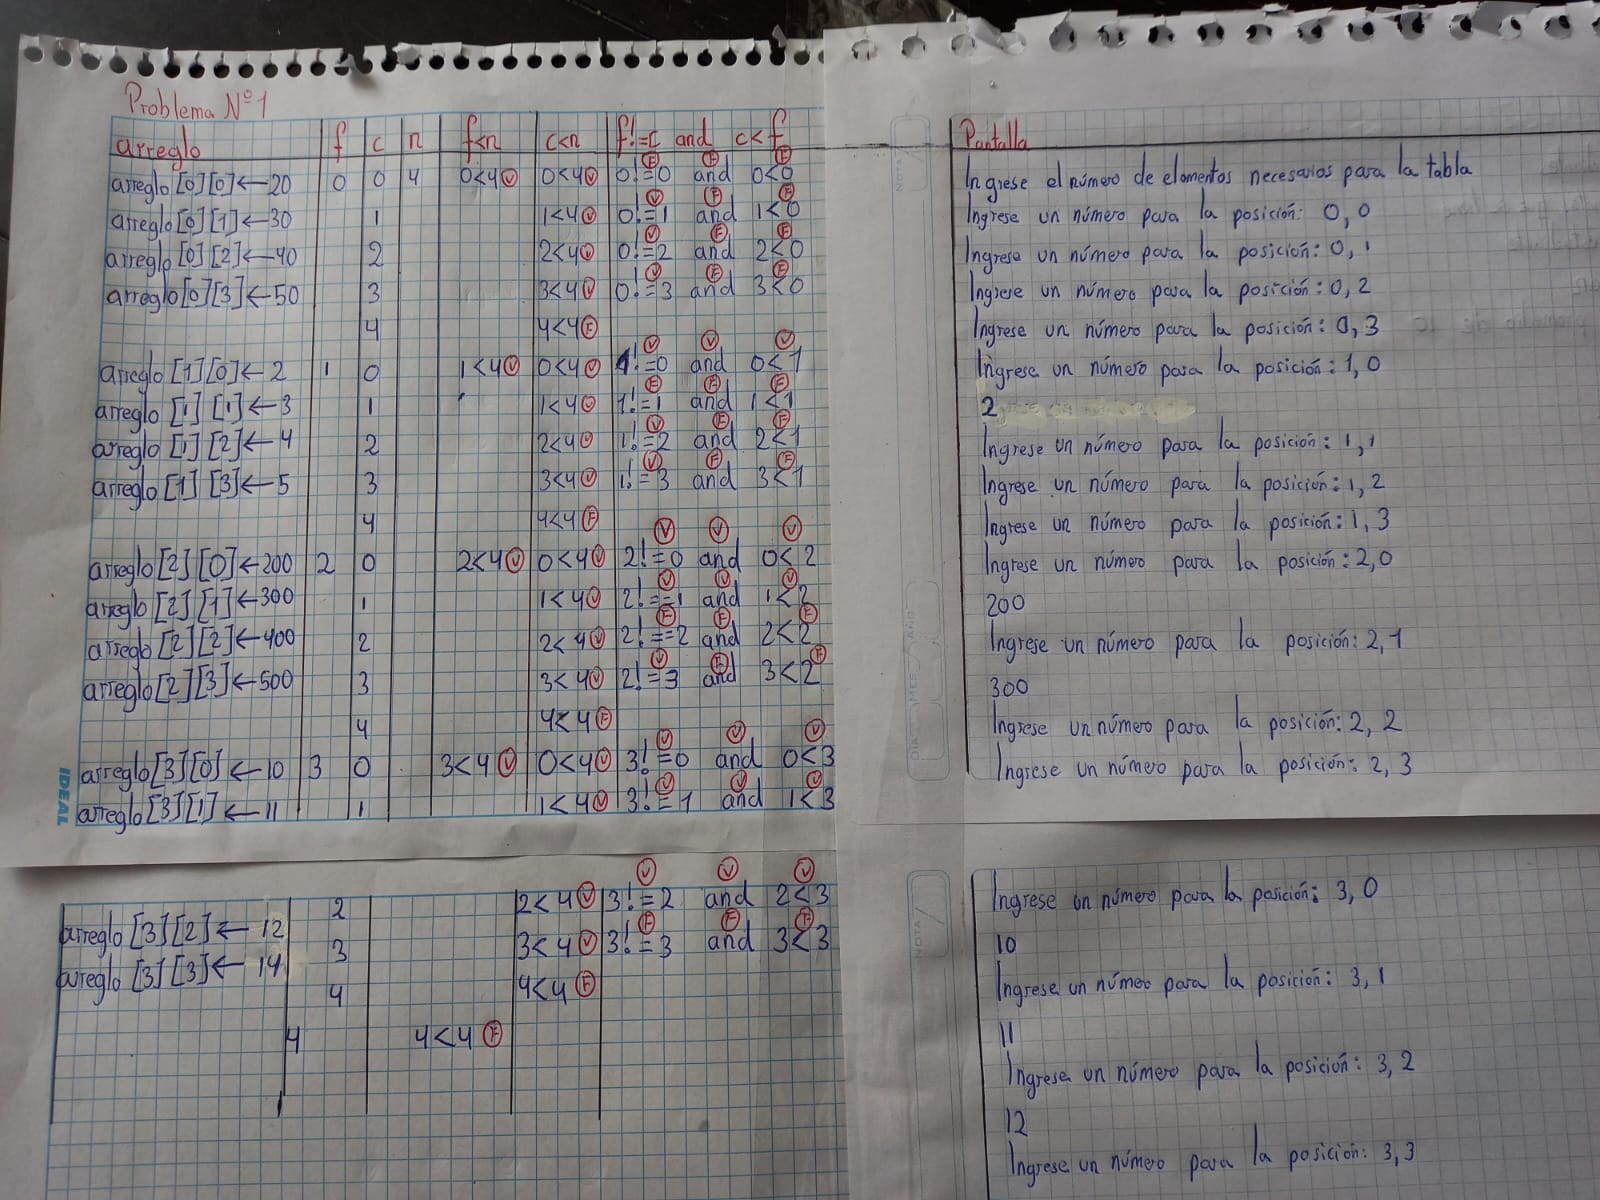 Problema Nº1
arreglo f c n f<n c<n f!=c and c<f
F F F
arreglo[0][0]←20 0 0 4 0<4 V 0<4 V 0!=0 and 0<0
V F F
arreglo[0][1]←30 1 1<4 V 0!=1 and 1<0
V F F
arreglo[0][2]←40 2 2<4 V 0!=2 and 2<0
V F F
arreglo[0][3]←50 3 3<4 V 0!=3 and 3<0
4 4<4 F
V V V
arreglo[1][0]←2 1 0 1<4 V 0<4 V 1!=0 and 0<1
F F F
arreglo[1][1]←3 1 1<4 V 1!=1 and 1<1
V F F
arreglo[1][2]←4 2 2<4 V 1!=2 and 2<1
V F F
arreglo[1][3]←5 3 3<4 V 1!=3 and 3<1
4 4<4 F
V V V
arreglo[2][0]←200 2 0 2<4 V 0<4 V 2!=0 and 0<2
V V V
arreglo[2][1]←300 1 1<4 V 2!==1 and 1<2
F F F
arreglo[2][2]←400 2 2<4 V 2!==2 and 2<2
V F F
arreglo[2][3]←500 3 3<4 V 2!=3 and 3<2
4 4<4 F
V V V
arreglo[3][0]←10 3 0 3<4 V 0<4 V 3!=0 and 0<3
V V V
arreglo[3][1]←11 1 1<4 V 3!=1 and 1<3
IDEAL
V V V
arreglo[3][2]←12 2 2<4 V 3!=2 and 2<3
F F F
arreglo[3][3]←14 3 3<4 V 3!=3 and 3<3
4 4<4 F
4 4<4 F
Pantalla
Ingrese el número de elementos necesarios para la tabla
Ingrese un número para la posición: 0,0
Ingrese un número para la posición: 0,1
Ingrese un número para la posición: 0,2
Ingrese un número para la posición: 0,3
Ingrese un número para la posición: 1,0
2
Ingrese un número para la posición: 1,1
Ingrese un número para la posición: 1,2
Ingrese un número para la posición: 1,3
Ingrese un número para la posición: 2,0
200
Ingrese un número para la posición: 2,1
300
Ingrese un número para la posición: 2,2
Ingrese un número para la posición: 2,3
Ingrese un número para la posición: 3,0
10
Ingrese un número para la posición: 3,1
11
Ingrese un número para la posición: 3,2
12
Ingrese un número para la posición: 3,3
NOTA
DIA MES AÑO
NOTA